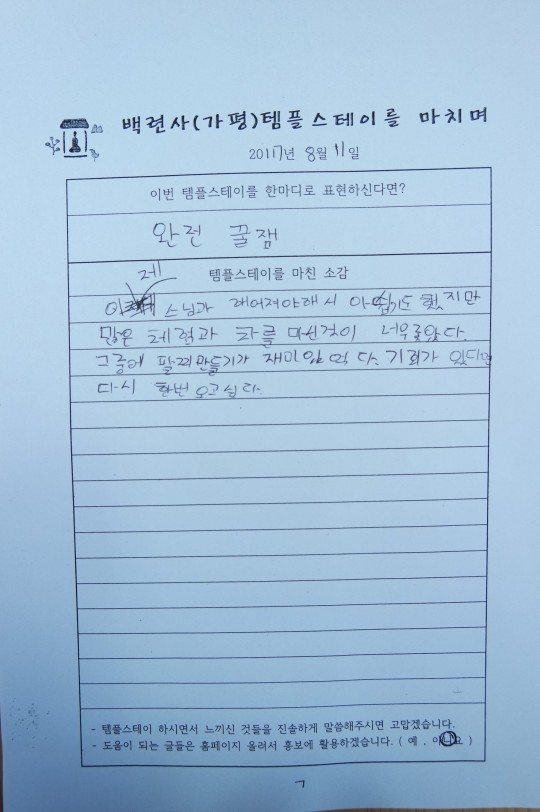 백련사(가평)템플스테이를 마치며
2017년 8월 11일
이번 템플스테이를 한마디로 표현하신다면?
완전 꿀잼
템플스테이를 마친 소감
이제 스님과 헤어져야해서 아쉽기도 했지만
많은 체험과 차를 마신것이 너무좋았다.
그중에 팔찌만들기가 재미있었다. 기회가 있다면
다시 한번 오고싶다.
- 템플스테이 하시면서 느끼신 것들을 진솔하게 말씀해주시면 고맙겠습니다.
- 도움이 되는 글들은 홈페이지 올려서 홍보에 활용하겠습니다. ( 예 , 아니요 )